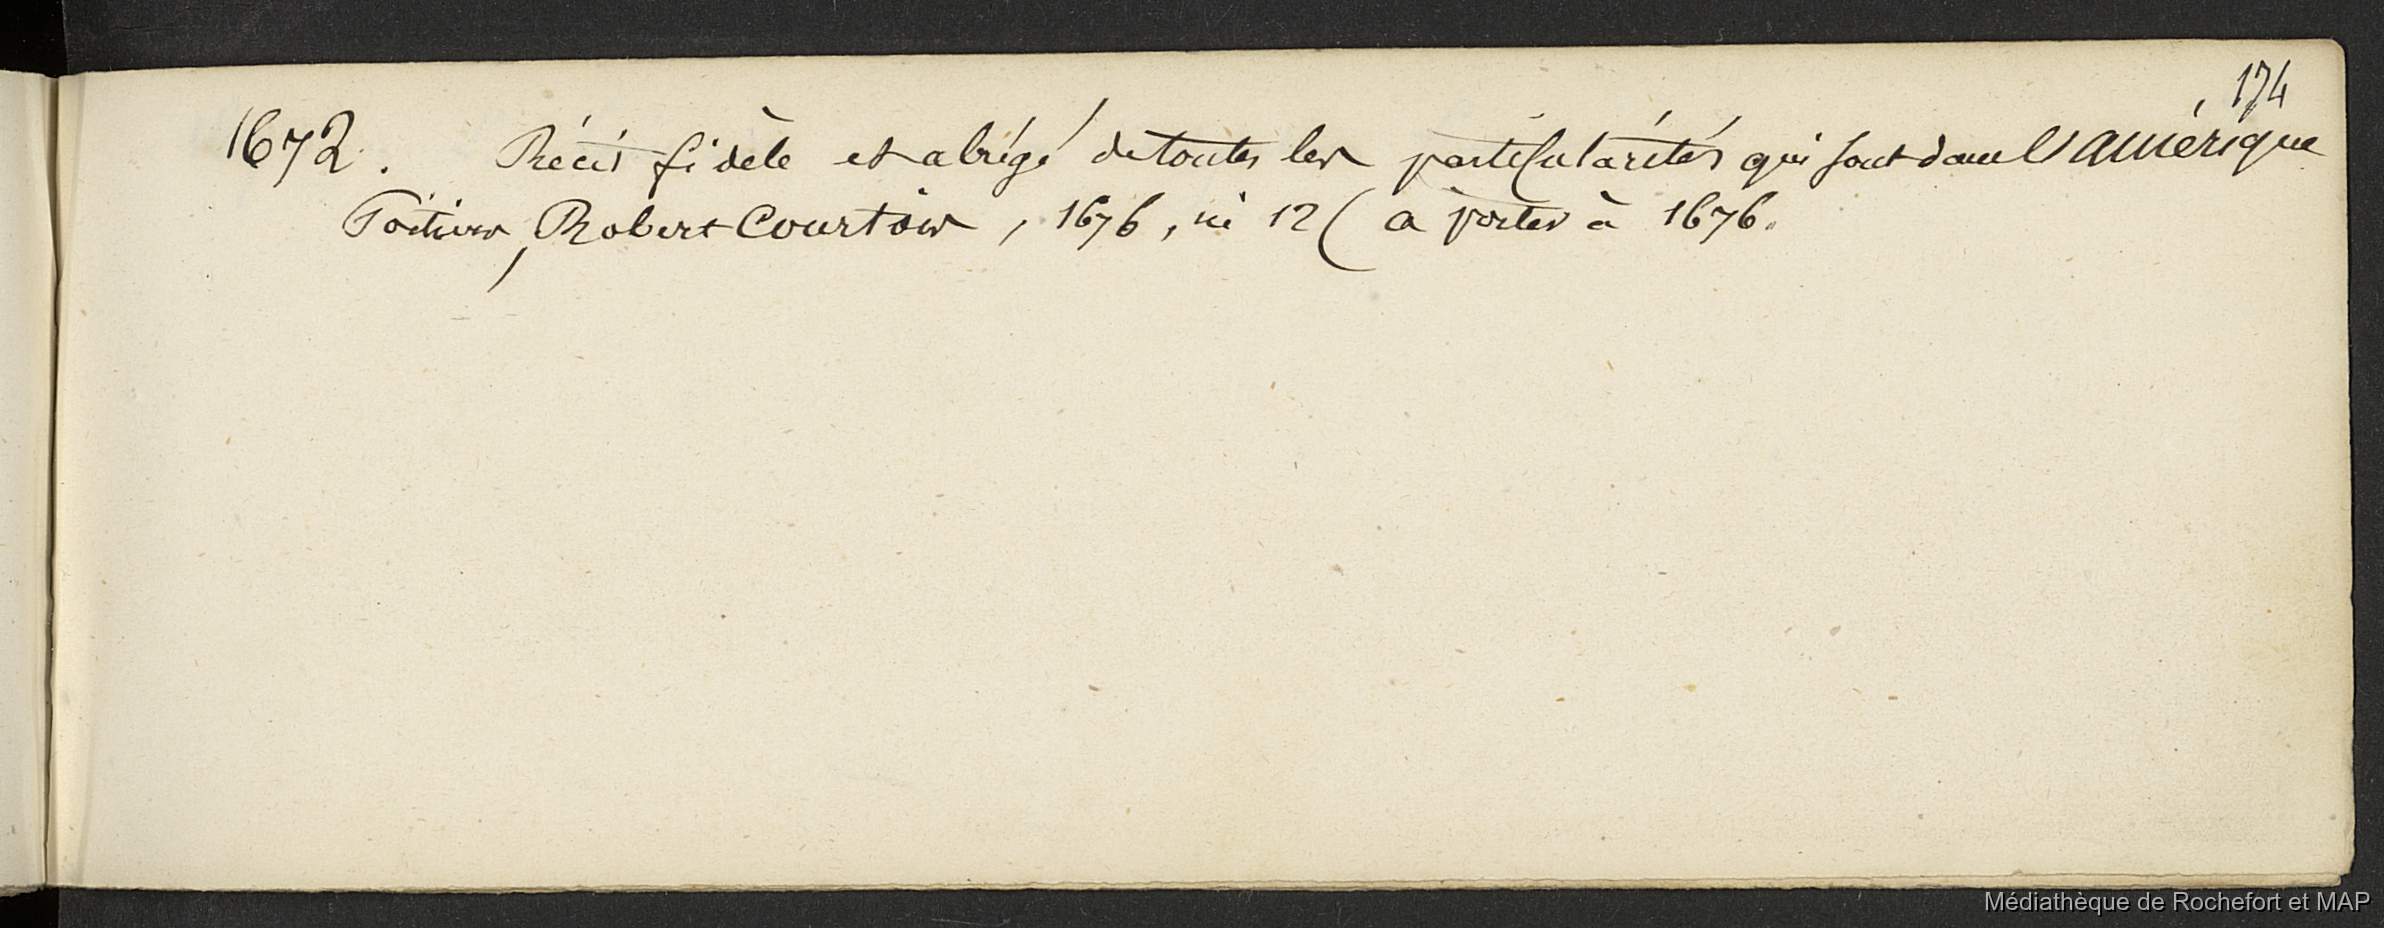 174
1672. Récit fidèle et abrégé de toutes les particularités qui sont dans l'amérique
Poitiers, Robert Courtois, 1676, in 12 ( a porter à 1676.
Médiathèque de Rochefort et MAP